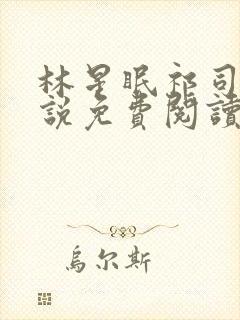 林星眠祁司
說免費閱讀
烏尔斯